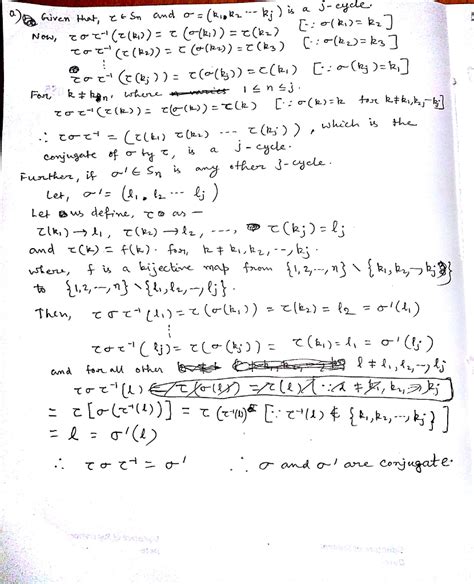 a) Given that, τ ∈ Sn and σ = (k₁, k₂ ... kj) is a j-cycle.
Now, τ σ τ⁻¹ (τ(k₁)) = τ (σ(k₁)) = τ(k₂) [∵ σ(k₁) = k₂]
τ σ τ⁻¹ (τ(k₂)) = τ (σ(k₂)) = τ(k₃) [∵ σ(k₂) = k₃]
⋮
τ σ τ⁻¹ (τ(kj)) = τ(σ(kj)) = τ(k₁) [∵ σ(kj) = k₁]
For k ≠ kn, where 1 ≤ n ≤ j.
τ σ τ⁻¹ (τ(k)) = τ(σ(k)) = τ(k) [∵ σ(k) = k for k ≠ k₁, k₂, .. kj]
∴ τ σ τ⁻¹ = (τ(k₁) τ(k₂) ... τ(kj)), which is the
conjugate of σ by τ, is a j-cycle.
Further, if σ' ∈ Sn is any other j-cycle.
Let, σ' = (l₁, l₂ ... lj)
Let us define, τ as –
τ(k₁) → l₁, τ(k₂) → l₂, ..., τ(kj) = lj
and τ(k) = f(k). for, k ≠ k₁, k₂, .., kj.
where, f is a bijective map from {1,2,..,n} \ {k₁, k₂, .., kj}
to {1,2,..,n} \ {l₁, l₂, .., lj}.
Then, τ σ τ⁻¹ (l₁) = τ (σ(k₁)) = τ(k₂) = l₂ = σ'(l₁)
⋮
τ σ τ⁻¹ (lj) = τ (σ(kj)) = τ(k₁) = l₁ = σ'(lj)
and for all other l ≠ l₁, l₂, .., lj
τ σ τ⁻¹ (l)
= τ [σ(τ⁻¹(l))] = τ (τ⁻¹(l)) [∵ τ⁻¹(l) ∉ {k₁, k₂, .., kj}]
= l = σ'(l)
∴ τ σ τ⁻¹ = σ' ∴ σ and σ' are conjugate.